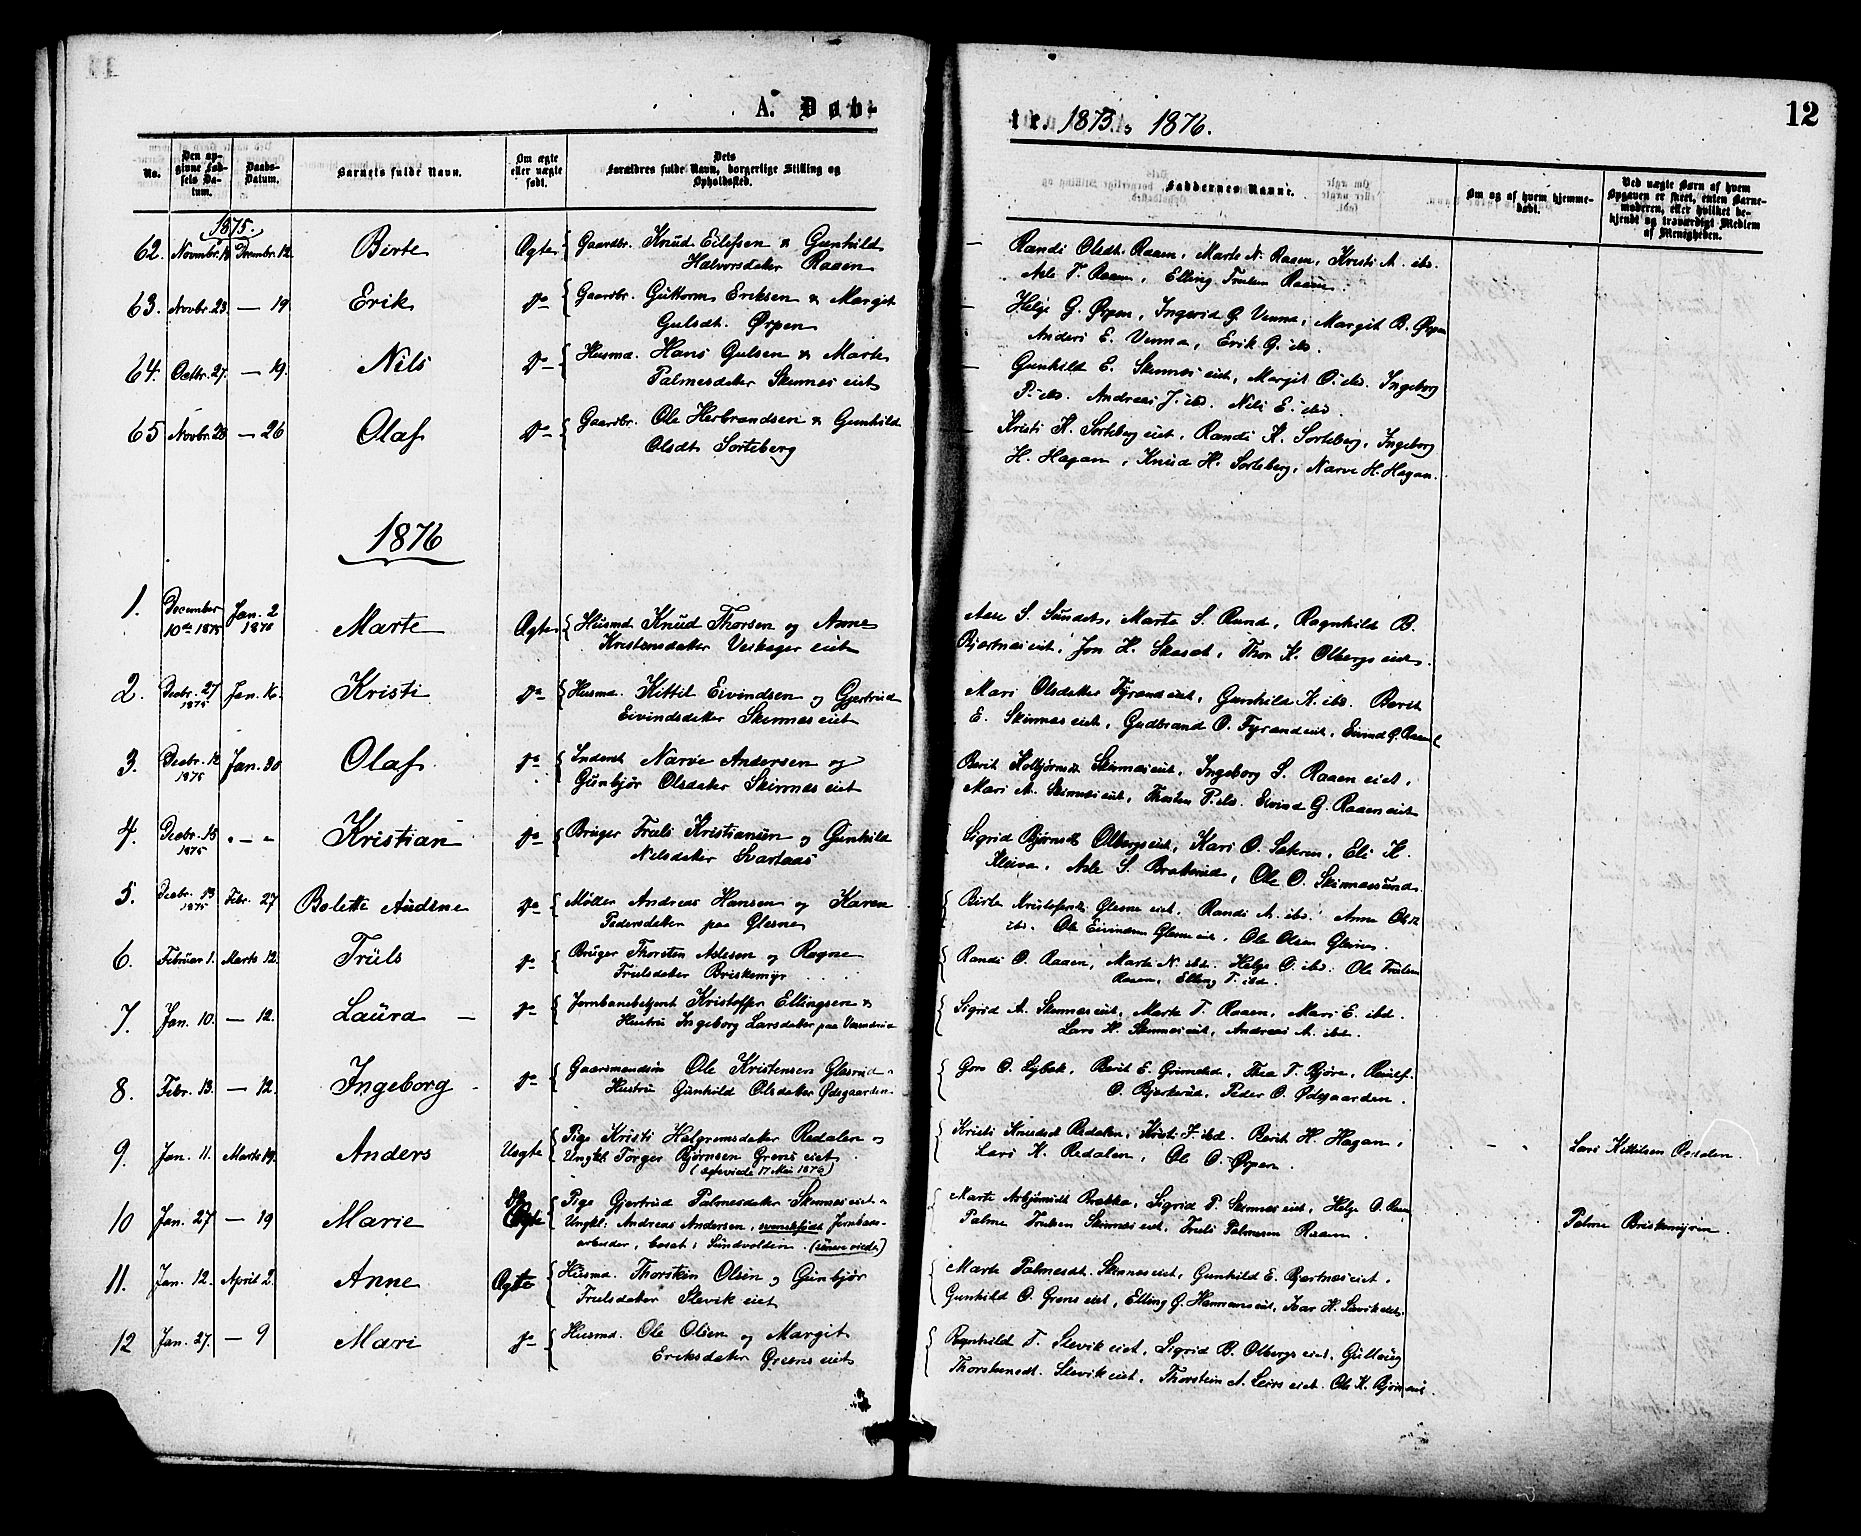 A. Døb-
te. 1875. 1876.
12
No.
Den op-
givne Fød-
sels Da-
tum.
Daabs-
Datum.
Barnets fulde Navn.
Om ægte
eller uægte
født.
Dets
Forældres fulde Navn, borgerlige Stilling og
Opholdssted.
Faddernes Navne.
Om og af hvem hjemme-
døbt.
Ved uægte Børn af hvem
Opgaven er skeet, enten Barne-
moderen, eller hvilket be-
kjendt og troværdigt Medlem
af Menigheden.
1875.
62. Novembr. 18 Decembr. 12. Birte Ægte Gaardbr. Knud Eilefsen & Gunhild
Halvorsdatter Raaen
Randi Olsdt. Raaen, Marte N. Raaen, Kristi A. ibd.
Asle T. Raaen, Elling Trulsen Raaen.
63. Novbr. 23. — 19 Erik Do Gaardbr. Guttorm Eriksen & Margit
Gulsdt. Ørpen
Helge G. Ørpen, Ingerid G. Venna, Margit B. Ørpen
Anders E. Venna, Erik G. ibd.
64. Octbr. 27. — 19. Nils Do Husmd. Hans Gulsen & Marte
Palmesdatter Skinnes eiet
Gunhild E. Skinnes eiet, Margit O. ibd. Ingeborg
P. ibd. Andreas J. ibd. Nils E. ibd.
65 Novbr. 28 — 26 Olaf Do Gaardbr. Ole Herbrandsen & Gunhild
Olsdt. Sorteberg
Kristi K. Sorteberg eiet, Randi K. Sorteberg, Ingeborg
H. Hagan, Knud H. Sorteberg, Narve H. Hagan.
1876
1. December
10de 1875 Jan. 2
1876 Marte Ægte Husmd Knud Thorsen og Anne
Kristensdatter Veshager eiet
Aase S. Sundet, Marte S. Rund, Ragnhild B.
Bjertnes eiet, Jon H. Skaset, Thor K. Olbergs eiet.
2. Decbr. 27
1875 Jan. 16. Kristi Do Husmd. Kittil Eivindsen og Gjertrud
Eivindsdatter Skinnes eiet
Mari Olsdatter Fyrand eiet, Gunhild K. ibd. Berit
E. Skinnes eiet, Gudbrand O. Fyrand eiet, Eivind G. Raaen
3. Decbr. 12
1875 Jan. 30 Olaf Do Inderst Narve Andersen og
Gunbjør Olsdatter Skinnes eiet
Berit Kolbjørnsdt Skinnes eiet, Ingeborg S. Raaen eiet,
Mari A. Skinnes eiet, Thosten P. ibd. Eivind G. Raaen eiet
4. Decbr. 15
1875 " — " Kristian Do Bruger Truls Kristiansen og Gunhild
Nilsdatter Svartaas
Sigrid Bjørnsdt Olbergs eiet, Kari O. Sakren, Eli K.
Kleiva, Asle S. Braterud, Ole O. Skinnessund.
5. Decbr. 13
1875 Febr. 27 Bolette Audine Do Møller Andreas Hansen og Karen
Pedersdatter paa Glesne
Birte Kristofersdt. Glesne eiet, Randi A. ibd. Anne Olsdt
ibd. Ole Eivindsen Glesne eiet, Ole Olsen Glesne.
6. Februar 1. Marts 12. Truls Do Bruger Thorsten Aslesen og Ragne
Trulsdatter Briskemyr
Randi O. Raaen, Marte N. ibd. Helge O. ibd. Ole Trulsen
Raaen, Elling T. ibd.
7. Jan. 10. — 12. Laura Do Jernbanebetjent Kristoffer Ellingsen &
Hustru Ingeborg Larsdatter paa
Sigrid A. Skinnes eiet, Marte T. Raaen, Mari E. ibd.
Lars H. Skinnes eiet, Andreas A. ibd.
8. Febr. 13. — 12. Ingeborg Do Gaardmandssøn Ole Kristensen Glasrud
Hustru Gunhild Olsdatter Ødegaarden
Goro O. Lybek, Berit E. Grimelid, Thea T. Bjøre,
O. Bjerkerud, Peder O. Ødegaarden.
9. Jan. 11. Marts 19. Anders Uægte Pige Kristi Halgrimsdatter Redalen og
Ungkl. Torger Bjørnsen Grens eiet
(egteviede 17 Mai 1876)
Kristi Knudsdt Redalen, Kristi T. ibd. Berit H. Hagan,
Lars K. Redalen, Ole O. Ørpen.
Lars Kittilsen Redalen.
10 Jan. 27 — 19 Marie Pige Gjertrud Palmesdatter Skinnes eiet
Ungkl. Andreas Andersen, svenskfødt Jernbane-
arbeider, bosat i Sundvolden.
Marte Asbjørnsdt Brakka, Sigrid P. Skinnes eiet, Helge O. Raaen
Palme Trulsen Skinnes eiet, Truls Palmesen Raaen.
Palme Briskemyren
11. Jan. 12. April 2. Anne Ægte Husmd. Thorstein Olsen og Gunbjør
Trulsdatter Slevik eiet
Marte Palmesdt. Skinnes eiet, Gunhild E. Bjertnes eiet,
Gunhild O. Grens eiet, Elling G. eiet, Ivar H. Slevik eiet.
12 Jan. 27. — 9 Mari Do Husmd. Ole Olsen og Margit
Eriksdatter Greens eiet
Ragnhild T. Slevik eiet, Sigrid B. Olbergs eiet, Gullaug
Thorsteinsdt. Slevik eiet, Thorstein A. Leirs eiet. Ole K.